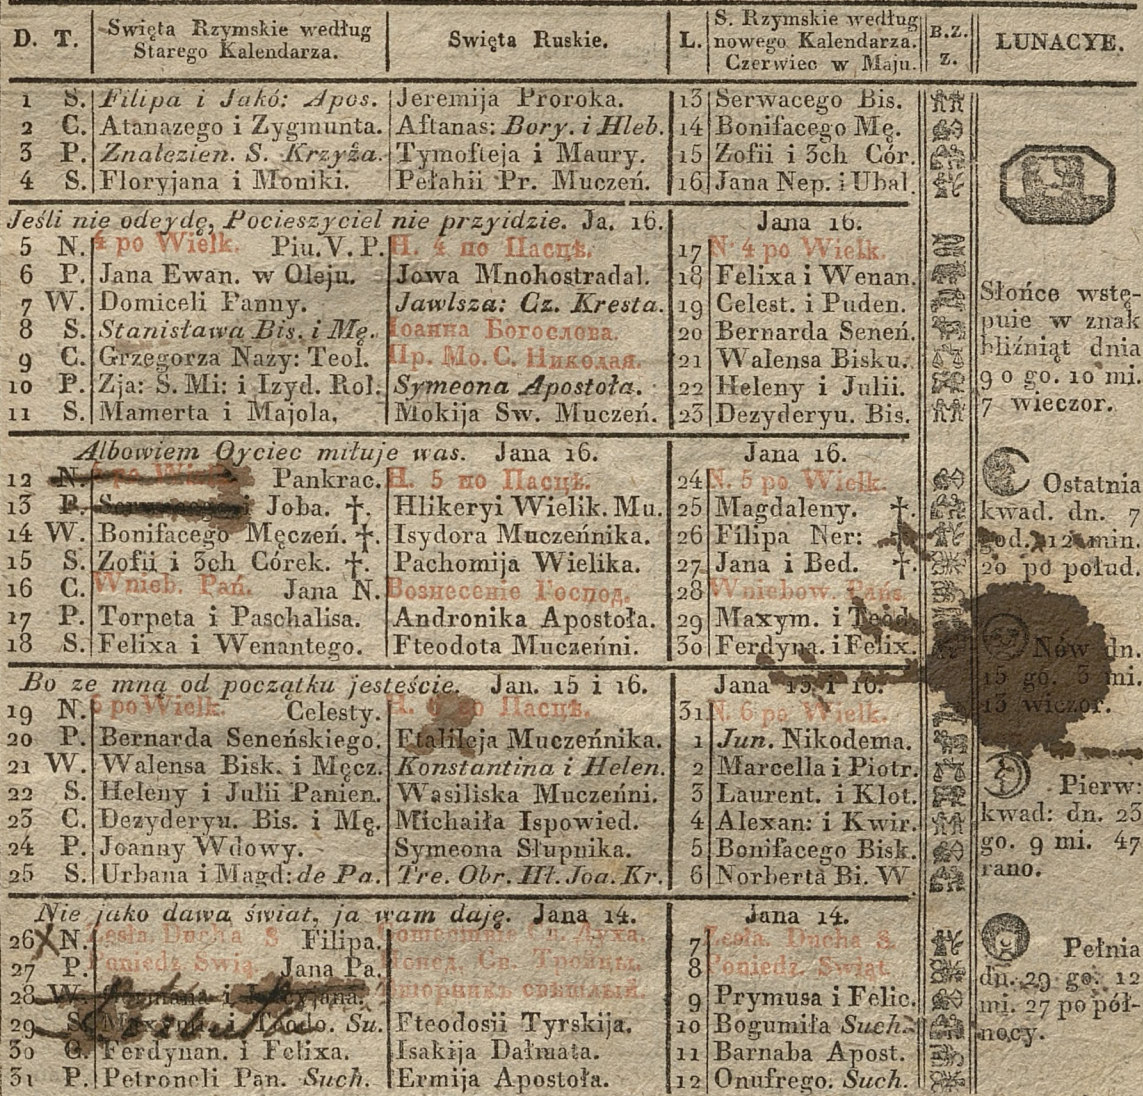 D. T. Swięta Rzymskie według Starego Kalendarza. Swięta Ruskie. L. S. Rzymskie według nowego Kalendarza. Czerwiec w Maju. B.Z. Z. LUNACYE.
1 S. Filipa i Jakó: Apos. Jeremija Proroka. 13 Serwacego Bis.
2 C. Atanazego i Zygmunta. Aftanas: Bory. i Hleb. 14 Bonifacego Mę.
3 P. Znalezien. S. Krzyża. Tymofteja i Maury. 15 Zofii i 3ch Cór.
4 S. Floryjana i Moniki. Pełahii Pr. Muczeń. 16 Jana Nep. i Ubal.
Jeśli nie odeydę, Pocieszyciel nie przyidzie. Ja. 16. Jana 16.
5 N. 4 po Wielk. Piu. V. P. Н. 4 по Пасцѣ. 17 N. 4 po Wielk.
6 P. Jana Ewan. w Oleju. Jowa Mnohostradal. 18 Felixa i Wenan.
7 W. Domiceli Panny. Jawlsza: Cz. Kresta. 19 Celest. i Puden.
8 S. Stanisława Bis. i Mę. Іоанна Богослова. 20 Bernarda Seneń.
9 C. Grzegorza Nazy: Teol. Пр. Мо. С. Николая. 21 Walensa Bisku.
10 P. Zja: S. Mi: i Izyd. Rol. Symeona Apostoła. 22 Heleny i Julii.
11 S. Mamerta i Majola. Mokija Sw. Muczeń. 23 Dezyderyu. Bis.
Słońce wstę-
puie w znak
bliźniąt dnia
9 o go. 10 mi.
7 wieczor.
Albowiem Oyciec miłuje was. Jana 16. Jana 16.
12 N. Pankrac. Н. 5 по Пасцѣ. 24 N. 5 po Wielk.
13 P. i Joba. †. Hlikeryi Wielik. Mu. 25 Magdaleny. †.
14 W. Bonifacego Męczeń. †. Isydora Muczeńnika. 26 Filipa Ner: †.
15 S. Zofii i 3ch Córek. †. Pachomija Wielika. 27 Jana i Bed. †.
16 C. Wnieb. Pań. Jana N. Вознесеніе Господ. 28 Wniebow. Pańs.
17 P. Torpeta i Paschalisa. Andronika Apostoła. 29 Maxym. i Teod.
18 S. Felixa i Wenantego. Fteodota Muczeńni. 30 Ferdyna. i Felix.
Ostatnia
kwad. dn. 7
god. 12 min.
20 po połud.
Nów dn.
15 go. 3 mi.
13 wieczor.
Bo ze mną od początku jesteście. Jan. 15 i 16. Jana 15. i 16.
19 N. 6 po Wielk. Celesty. Н. 6 по Пасцѣ. 31 N. 6 po Wielk.
20 P. Bernarda Seneńskiego. Ftalileja Muczeńnika. 1 Jun. Nikodema.
21 W. Walensa Bisk. i Męcz. Konstantina i Helen. 2 Marcella i Piotr.
22 S. Heleny i Julii Panien. Wasiliska Muczeńni. 3 Laurent. i Klot.
23 C. Dezyderyu. Bis. i Mę. Michaiła Ispowied. 4 Alexan: i Kwir.
24 P. Joanny Wdowy. Symeona Słupnika. 5 Bonifacego Bisk.
25 S. Urbana i Magd: de Pa. Tre. Obr. Hł. Joa. Kr. 6 Norberta Bi. W
Pierw:
kwad: dn. 23
go. 9 mi. 47
rano.
Nie jako dawa świat, ja wam daję. Jana 14. Jana 14.
26 N. Zesła. Ducha S Filipa. 7 Zesła. Ducha S.
27 P. Poniedz Swią. Jana Pa. Понед. Св. Тройцы. 8 Poniedz. Swiąt.
28 W. Вторникъ 9 Prymusa i Felic.
29 S. Maxyma. i Teodo. Su. Fteodosii Tyrskija. 10 Bogumiła Such.
30 C. Ferdynan. i Felixa. Isakija Dałmata. 11 Barnaba Apost.
31 P. Petroneli Pan. Such. Ermija Apostoła. 12 Onufrego. Such.
Pełnia
dn. 29 go. 12
mi. 27 po pół-
nocy.